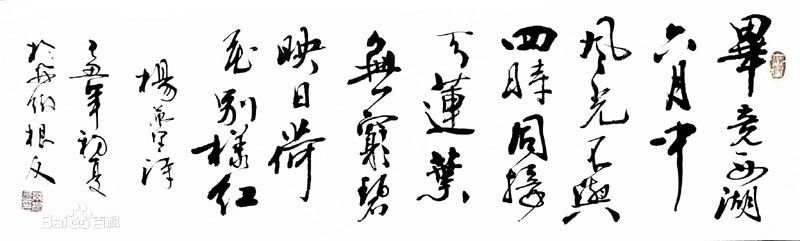 畢竟西湖
六月中
風光不與
四時同接
天蓮葉
無窮碧
映日荷
花別樣紅
楊萬里詩
年初夏
於 根文
Bai百科